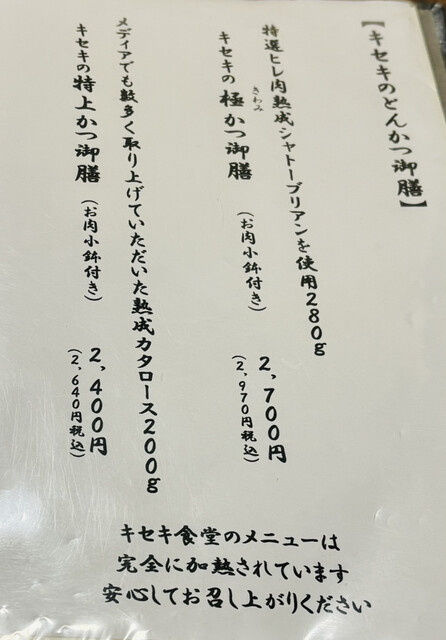 【キセキのとんかつ御膳】
特選ヒレ肉熟成シャトーブリアンを使用280g
きわみ
キセキの極かつ御膳（お肉小鉢付き）2,700円
（2,970円税込）
メディアでも数多く取り上げていただいた熟成カタロース200g
キセキの特上かつ御膳（お肉小鉢付き）2,400円
（2,640円税込）
キセキ食堂のメニューは
完全に加熱されています
安心してお召し上がりください